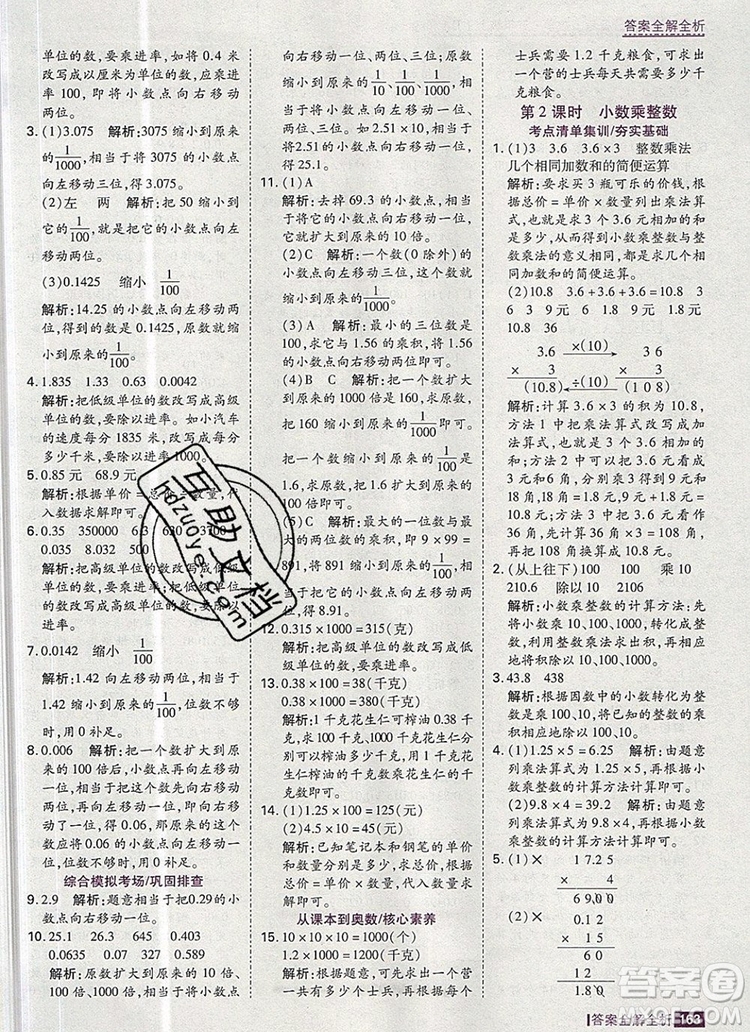 答案全解全析
单位的数,要乘进率。如将以米
改写成以厘米为单位的数,应乘进
率 100,即将小数点向右移动
两位。
3.(1)3.075 解析:3075 缩小到原来的
1/1000,将它的小数点向左移动三位。
(2)左 两 解析:把 50 缩小到
它的1/100,就是将它的小数点向左移
动两位。
(3)0.1425 缩小 1/100
解析:14.25 的小数点向左移动两
位,得到的数是 0.1425,原数就缩
小到原来的1/100。
4.1.835 1.33 0.63 0.0042
解析:把低级单位的数改写成高级
单位的数,要除以进率。如小汽车
的速度每分 1835 米,改写成每分
多少千米,要除以 1000。
5.0.85 元 68.9 元
解析:根据单价=总价÷数量,代
入数据求解即可。
6.0.35 350000 6.3 0.63
0.035 8.032 500
解析:把高级单位的数改写成低级
单位的数要乘进率,把低级单位
的数改写成高级单位的数要除以
进率。
7.0.0142 缩小 1/100
解析:1.42 向左移动两位,就缩小
到原来的1/100,向左移动,位数不够
时,用 0 补足。
8.0.006 解析:把一个数扩大到原
来的 100倍,小数点再向左移动一
位,小数点应把这个数先向右移动
两位,再向左移动一位,最后是向右
移动了一位,现在把 0.06 向左移动
一位,得 0.006,向左移动位数不够
时用 0 补足。
综合模拟考场/巩固排查
9.2.9 解析:题意是把0.29的小数点
向右移动一位。
10.25.1 26.3 645 0.403
0.0635 0.07 327 0.589
解析:原数扩大到原来的 10 倍、
100 倍、1000 倍,就是将小数点
向右移动一位、两位、三位;原数
缩小到原来的1/10、1/100、1/1000,是将小
数点向左移动一位、两位、三位。
如:2.51×10,是将 2.51 的小数点
向右移动一位,得 25.1。
11.(1)A
解析:去掉 69.3 的小数点,相当
于将它的小数点向右移动一位,
即扩大到原来的 10 倍。
(2)C 解析:一个数(0 除外)的
小数点向左移动两位,原数就缩
小到原来的1/100。
(3)A 解析:最小的三位数
100 与 1.56 的乘积,将 1.56 的
小数点向右移动两位即可。
(4)B 解析:把一个数扩大
到原来的 1000 倍后是 163,
就是把 163 缩小到原来的1/1000
即可。
解析:一个数的1/100是
1.6,求原数,把 1.6 扩大到原来
的 100 倍即可。
(5)C 解析:最大的一位数与最
大的两位数的乘积,即 9×99=
891,将 891 缩小到原来的1/100,即
将 891 的小数点向左移动两位,
得 8.91。
12.0.315×1000=315(克)
解析:把高级单位的数改写成低
级单位的数,要乘进率。
13.0.38×100=38(千克)
0.38×1000=380(千克)
解析:1 千克花生仁可榨油 0.38 千
克,求100千克、1000千克花生仁分
别可以榨油多少千克,就用 1 千
克花生仁的榨油千克数乘花生仁
的千克数。
14.(1)1.25×100=125(元)
(2)4.5×10=45(元)
解析:已知笔记本和钢笔的单价
和数量,求总价,根据单价×数
量=总价求解即可。
从课本到奥数/核心素养
15.10×10×10=1000(个)
1.2×1000=1200(千克)
解析:根据题意,先求出一个营一
共有多少个士兵,再根据每个
士兵需要 1.2 千克粮食,求出
一个营的士兵每天共需要多少千
克粮食。
第 2 课时 小数乘整数
考点清单集训/夯实基础
1.(1)3 3.6 3.6×3 整数乘法
几个相同加数和的简便运算
解析:要求买 3 瓶可乐的价钱,根
据单价×数量=总价列出乘法算
式,也就是求 3 个 3.6 元的和
是多少,从而发现小数乘整数与整
数乘法的意义相同,都是求几个相
同加数和的简便运算。
(2)10.8 3.6 3.6 3.6 10.8
10.8
3.6 ×(10) 3 6
× 3 × 3
(10.8) ÷(10) (1 0 8)
解析:计算 3.6×3 的积为 10.8,
方法 1 中把乘法算式改写成加
法算式,使小数乘法转化为小数
加法,方法 2 是把 3.6 元看成
3 元和 6 角,分别乘 3 得到 9 元和
18 角,18 角=1.8 元,1.8 元+
9 元=10.8 元;方法 3 是把 3.6 元
转换成 36 角,乘 3 得 108 角,再
把 108 角换算成 10.8 元。
2.(从上往下)100 100 乘 10
210.6 除以 10 2106
解析:小数乘整数的计算方法:先
把小数转化成整数,按整数乘法计
算,利用整数乘法求出积,同时积
要除以 10、100、1000。
3.43.8 438
解析:根据因数中的小数转化为整
数是乘 100、10,将已知的整数乘
积相应地除以 100、10即可。
4.(1)1.25×5=6.25 解析:由题意
列乘法算式为 1.25×5,根据小数
乘整数的计算方法计算即可。
(2)9.8×4=39.2 解析:由题意
列乘法算式为 9.8×4,根据小数乘
整数的计算方法计算即可。
5.(1)× 1 7.2 5
× 4
6 9.0 0
(2)× 0.1 2
× 1 5
6 0
1 2
1.8 0
答案全解全析 163
互助文档
hozuoye.com
答案圈